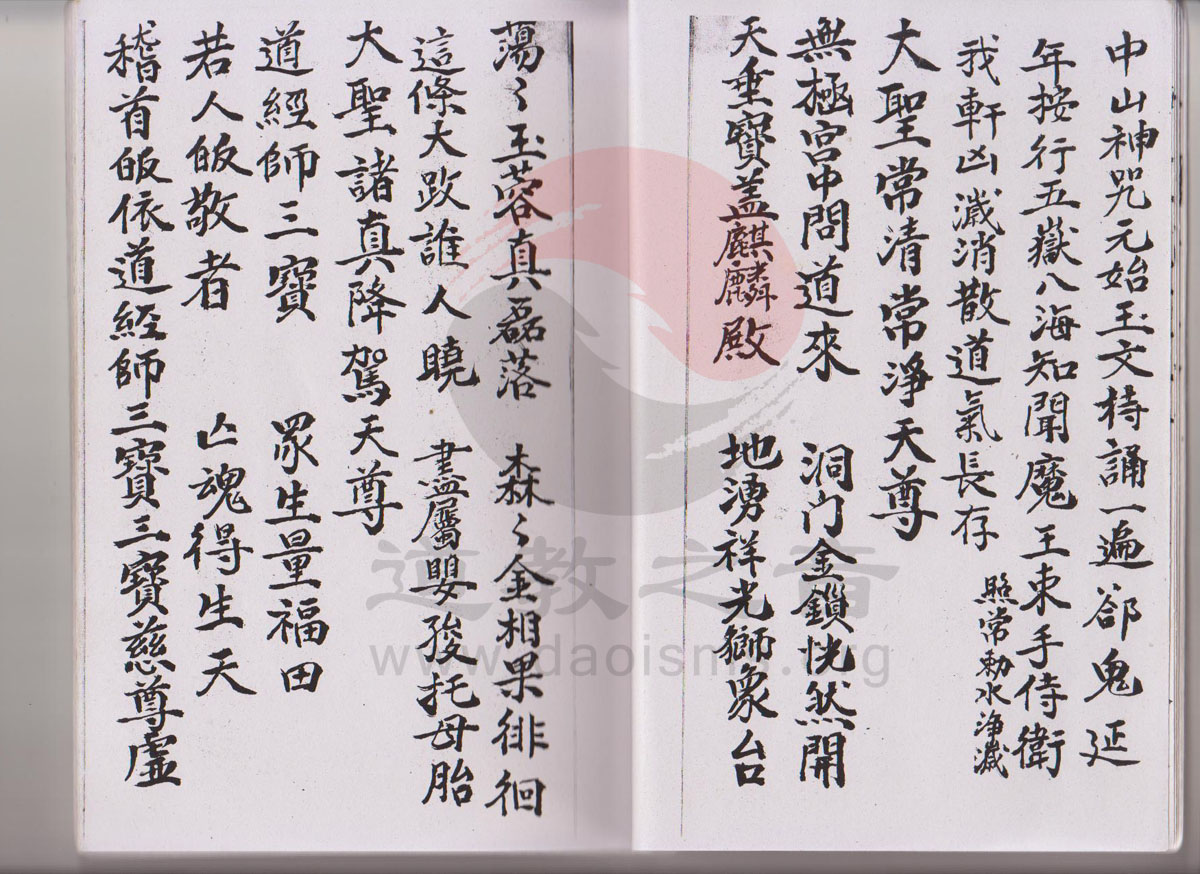 中山神咒元始玉文持誦一遍郤鬼延
年按行五嶽八海知聞魔王束手侍衛
我軒凶濊消散道氣長存 照常勅水淨濊
大聖常清常淨天尊
無極宮中問道來 洞门金鎖恍然開
天垂寶盖麒麟殿 地湧祥光獅象台
蕩〻玉蓉真磊落 森〻金相果徘徊
這條大路誰人曉 盡屬嬰孩托母胎
大聖諸真降駕天尊
道經師三寶 眾生量福田
若人皈敬者 亡魂得生天
稽首皈依道經師三寶三寶慈尊虛
道教之音
www.daoisms.org